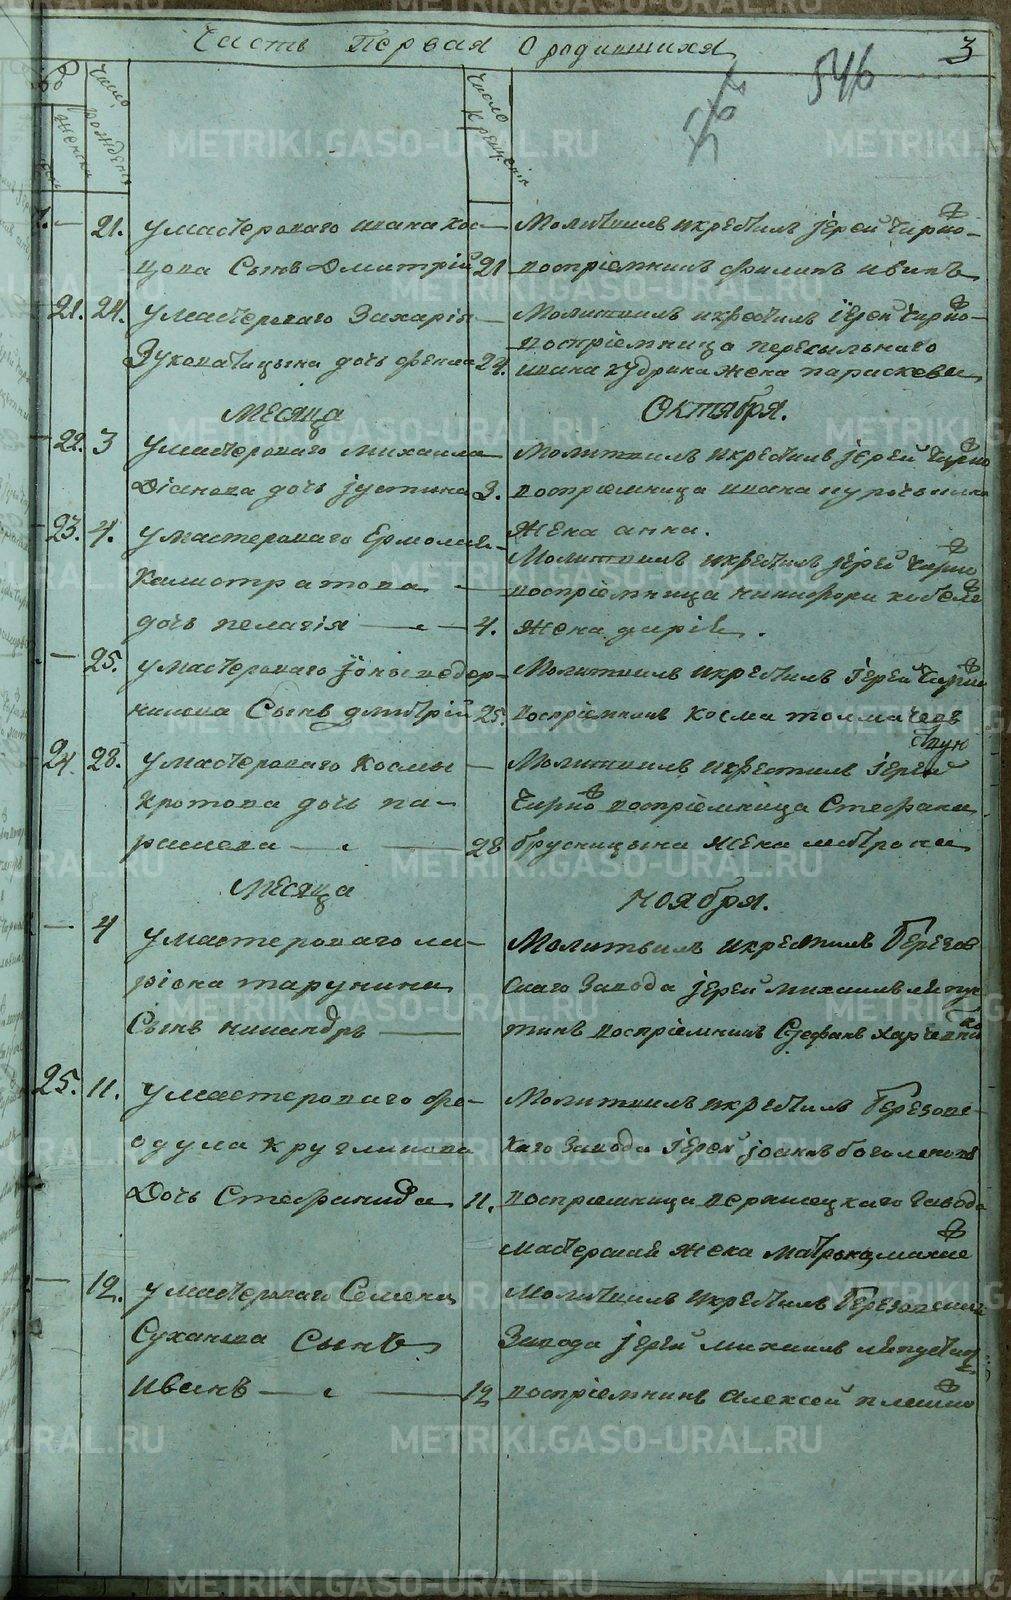 Часть Первая О родившихся
3
546
число рождения
число крещения
женска
21. умастероваго ивана кос-
цова Сынъ Дмитрій 21
Молитвилъ икрестилъ іерей Чирко-
воспріемникъ филипъ ивинъ
21. 24. умастероваго Захарія
дочь фекла 24.
Молитвилъ икрестилъ іерей Чирко-
воспріемница
ивана кудрина жена параскева
Месяца Октября.
22. 3 умастероваго михаила
дочь іустина 3.
Молитвилъ икрестилъ іерей Чирко
воспріемница ивана
жена анна.
23. 4. умастероваго Ермолая
Калистратова
дочь пелагія 4.
Молитвилъ икрестилъ іерей Чирко
воспріемница никифора кобеле
жена дарія.
25. умастероваго іоны ведер-
никова Сынъ дмитрій 25.
Молитвилъ икрестилъ іерей Чирко
воспріемникъ косма толмачевъ
24. 28. умастероваго Космы
Кротова дочь па-
раскева 28
Молитвилъ икрестилъ іерей
Чирко воспріемница Стефана
брусницына жена матрона
Месяца ноября.
4 умастероваго ла-
ріона тарунина
Сынъ никандръ
Молитвилъ икрестилъ Березов
скаго Завода іерей михаилъ ляпус
тинъ воспріемникъ Стефанъ Харченко
25. 11. умастероваго фе-
одула Кругликова
Дочь Стефанида 11.
Молитвилъ икрестилъ Березовс-
каго Завода іерей іоаннъ боголеповъ
воспріемница завода
мастерской жена матрона
12. умастероваго Семена
Суханова Сынъ
иванъ 12
Молитвилъ икрестилъ Березовскаго
Завода іерей михаилъ ляпустин
воспріемникъ Алексей плешко
METRIKI.GASO-URAL.RU